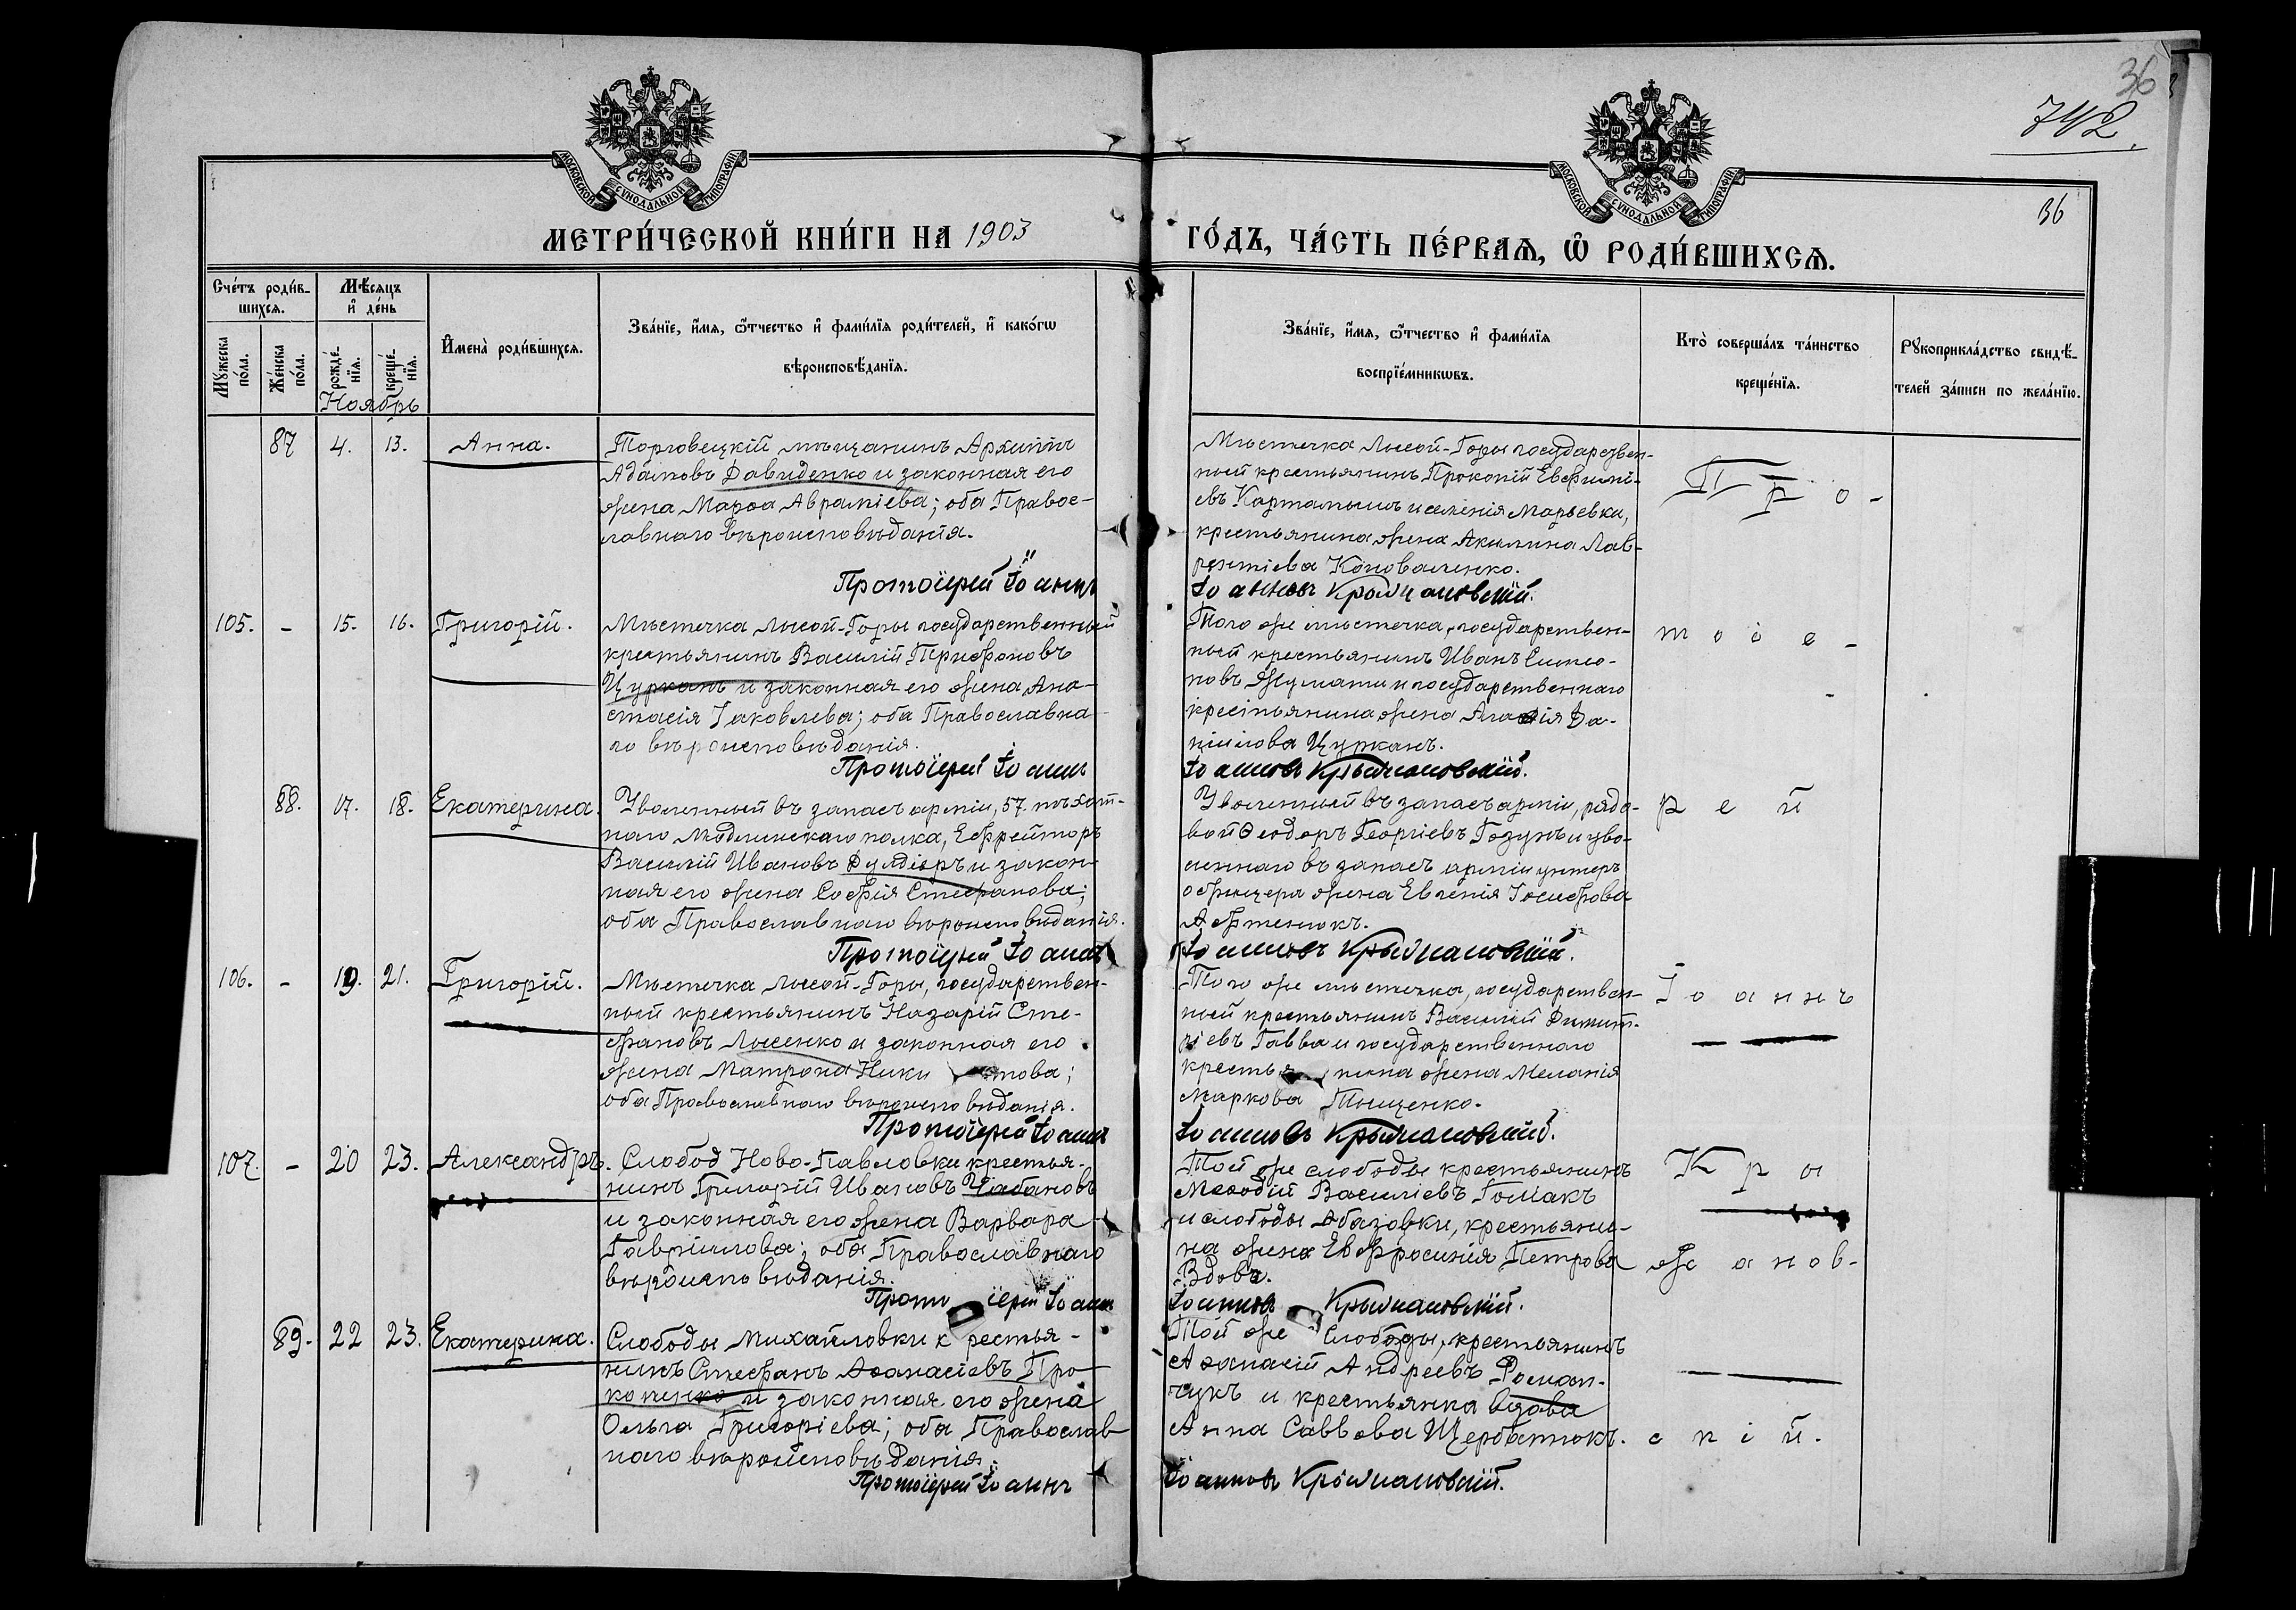 36
742.
36
МОСКОВСКОЙ СѴНОДАЛЬНОЙ ТИПОГРАФІИ
МОСКОВСКОЙ СѴНОДАЛЬНОЙ ТИПОГРАФІИ
МЕТРИ́ЧЕСКОЙ КНИ́ГИ НА 1903
ГО́ДЪ, ЧА́СТЬ ПЕ́РВАѦ, Ѡ҆ РОДИ́ВШИХСѦ.
Сче́тъ роди́в-
шихсѧ.
Мꙋ́жеска по́ла.
Же́нска по́ла.
Мѣ́сѧцъ
и҆ де́нь
рожде́-
нїѧ.
креще́-
нїѧ.
Ноябрь
И҆мена̀ роди́вшихсѧ.
Зва́нїе, и҆́мѧ, ѻ҆́тчество и҆ фами́лїѧ роди́телей, и҆ како́гѡ
вѣроисповѣ́данїѧ.
Зва́нїе, и҆́мѧ, ѻ҆́тчество и҆ фами́лїѧ
воспрїе́мникѡвъ.
Кто̀ соверша́лъ та́инство
креще́нїѧ.
Рꙋкоприкла́дство свидѣ́-
телей за́писи по жела́нїю.
87 4. 13. Анна.
Торговецкій мѣщанинъ Архипъ
Адамовъ Давиденко и законная его
жена Марѳа Авраміева; оба Правос-
лавнаго вѣроисповѣданія.
Протоіерей Іоаннъ
Мѣстечка Лысой-Горы государствен-
ный крестьянинъ Прокопій Евфимі-
евъ Картамышъ и селенія Марьевки,
крестьянина жена Акилина Лав-
рентіева Коноваленко.
Іоанновъ Крыжановскій.
Про-
105. - 15. 16. Григорій.
Мѣстечка Лысой-Горы государственный
крестьянинъ Василій Трифоновъ
Цурканъ и законная его жена Ана-
стасія Іаковлева; оба Православна-
го вѣроисповѣданія.
Протоіерей Іоаннъ
Того же мѣстечка, государствен-
ный крестьянинъ Иванъ Симео-
новъ и государственнаго
крестьянина жена Агафія Да-
ніилова Цурканъ.
Іоанновъ Крыжановскій.
тоіе-
88. 17. 18. Екатерина.
Уволенный въ запасъ арміи, 57 пѣхот-
наго Модлинскаго полка, Ефрейторъ
Василій Ивановъ Дундіеръ и закон-
ная его жена Софія Стефанова;
оба Православнаго вѣроисповѣданія.
Протоіерей Іоаннъ
Уволенный въ запасъ арміи, рядо-
вой Ѳеодоръ Георгіевъ Гозунъ и уво-
леннаго въ запасъ арміи унтеръ
офицера жена Евгенія Іосифова
Афтенюкъ.
Іоанновъ Крыжановскій.
рей
106. - 19. 21. Григорій.
Мѣстечка Лысой-Горы, государствен-
ный крестьянинъ Назарій Сте-
фановъ Лысенко и законная его
жена Матрона Никитова;
оба Православнаго вѣроисповѣданія.
Протоіерей Іоаннъ
Того же мѣстечка, государствен-
ный крестьянинъ Василій Димит-
ріевъ Гавва и государственнаго
крестьянина жена Меланія
Маркова Тищенко.
Іоанновъ Крыжановскій.
Іоаннъ
107. - 20 23. Александръ.
Слобод Ново-Павловки крестья-
нинъ Григорій Ивановъ Чабановъ
и законная его жена Варвара
Гавріилова; оба Православнаго
вѣроисповѣданія.
Протоіерей Іоаннъ
Той же слободы крестьянинъ
Меѳодій Василіевъ Гошакъ
и слободы Абазовки, крестьяни-
на жена Евфросинія Петрова
Вдова.
Іоанновъ Крыжановскій.
Кры
жанов-
89. 22 23. Екатерина.
Слободы Михайловки крестья-
нинъ Стефанъ Аѳанасіевъ Про
копенко и законная его жена
Ольга Григоріева; оба Православ-
наго вѣроисповѣданія.
Протоіерей Іоаннъ
Той же Слободы, крестьянинъ
Аѳанасій Андреевъ Роман-
чукъ и крестьянка вдова
Анна Саввова Щербатюкъ.
Іоанновъ Крыжановскій.
скій.